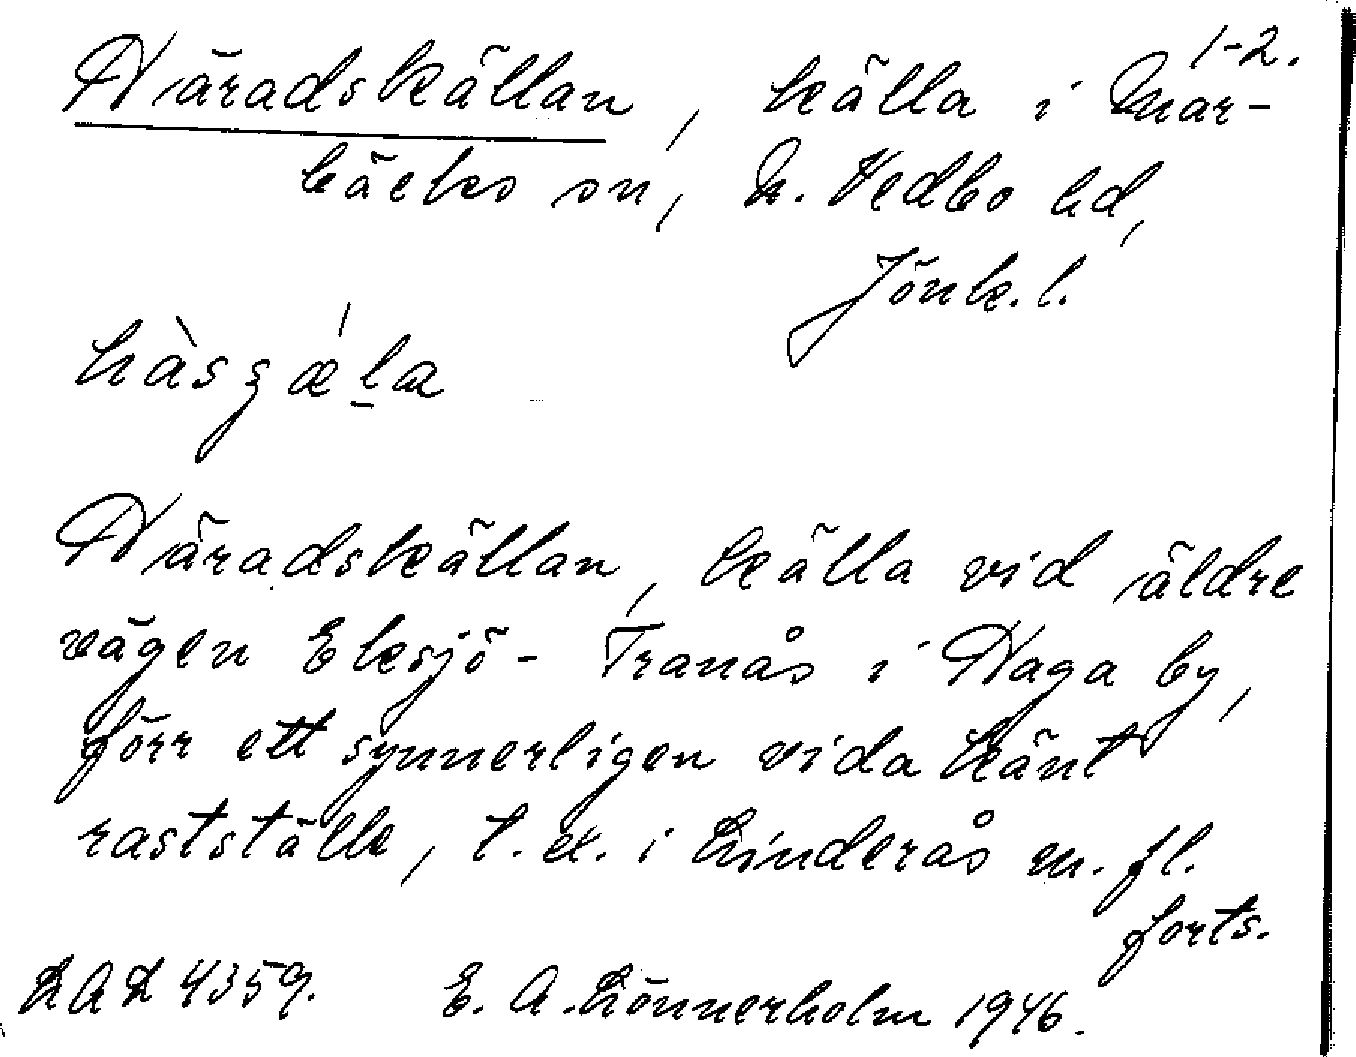 1-2.
Häradskällan, källa i Mar-
bäcks sn, N. Vedbo hd,
Jönk.l.
Häradskällan, källa vid äldre
vägen Eksjö - Tranås i Haga by,
förr ett synnerligen vida känt
rastställe, t.ex. i Linderås m.fl.
forts.
LAL 4359. E. A. Lönnerholm 1946.